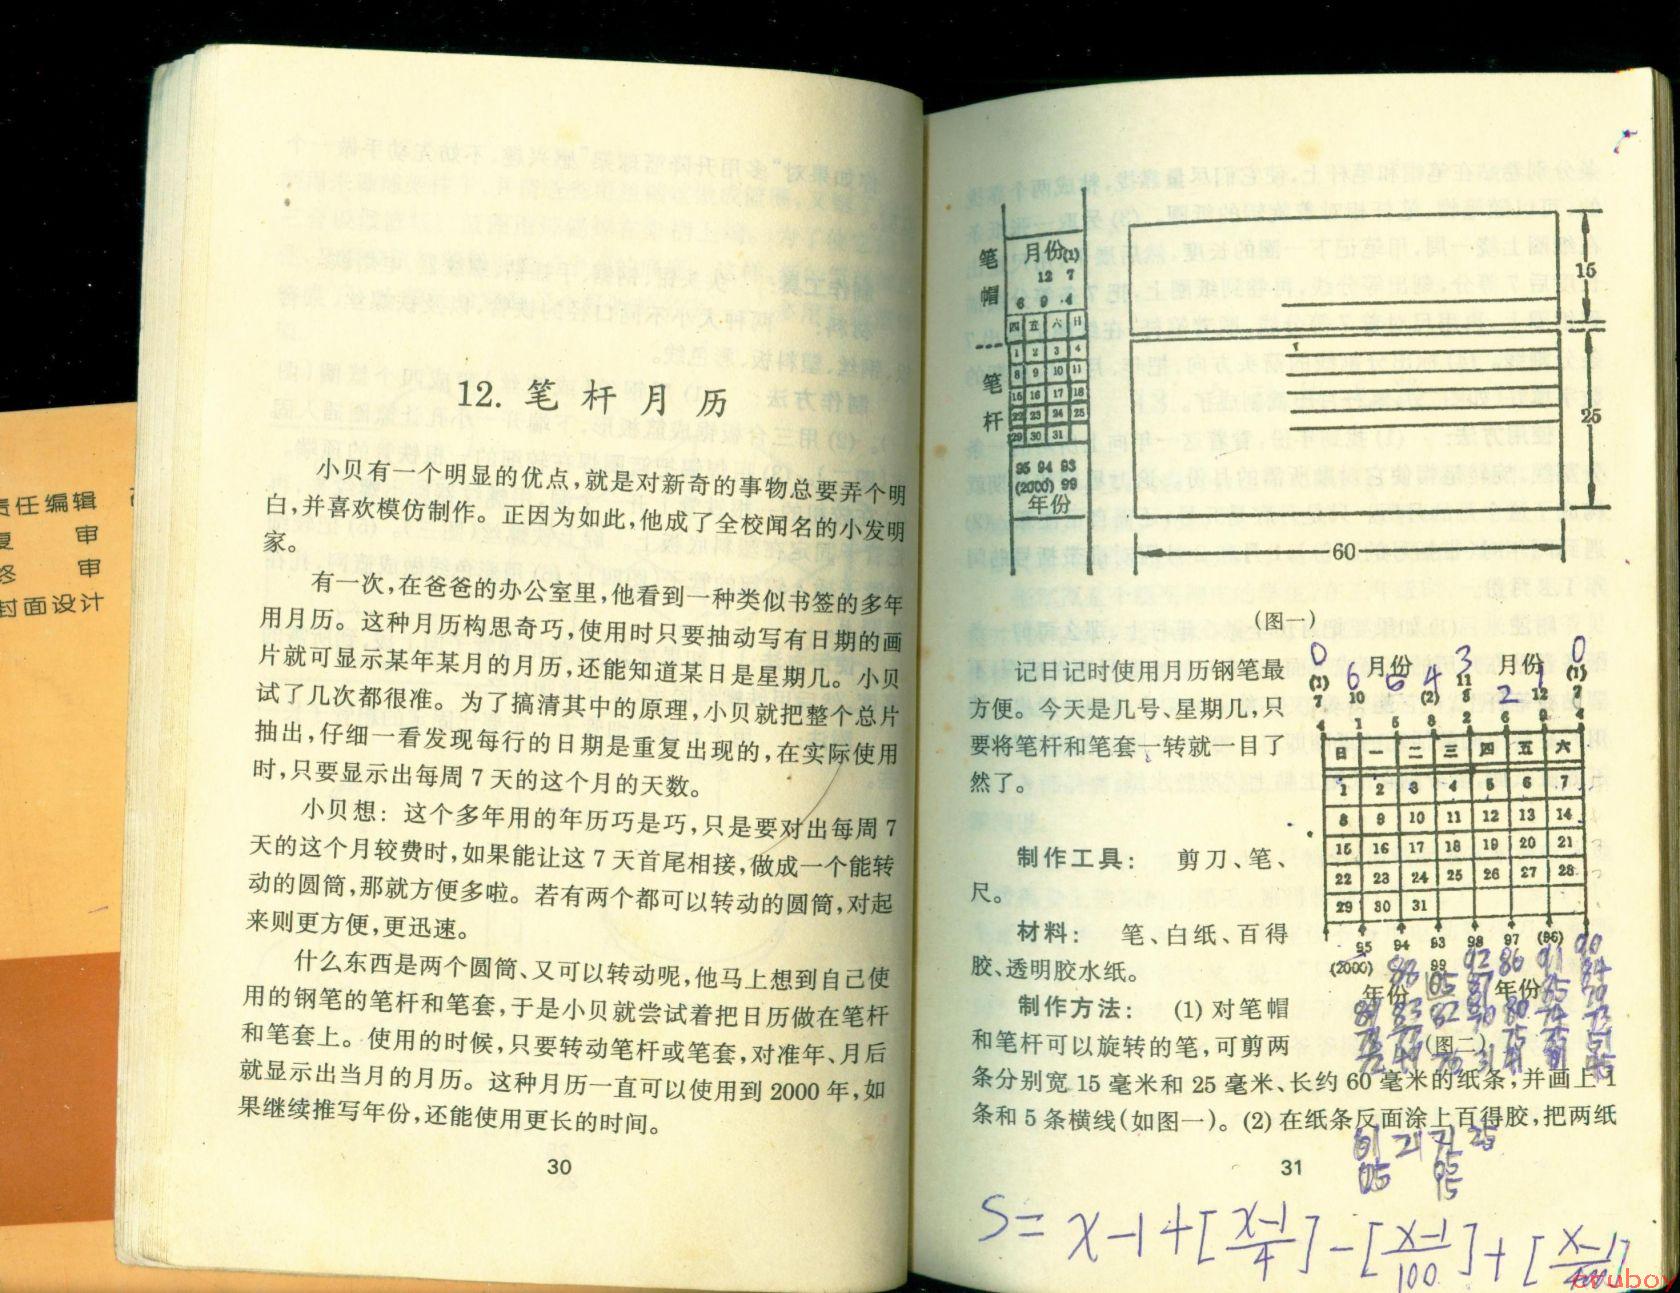 责任编辑
复 审
终 审
封面设计
12. 笔 杆 月 历
小贝有一个明显的优点,就是对新奇的事物总要弄个明
白,并喜欢模仿制作。正因为如此,他成了全校闻名的小发明
家。
有一次,在爸爸的办公室里,他看到一种类似书签的多年
用月历。这种月历构思奇巧,使用时只要抽动写有日期的画
片就可显示某年某月的月历,还能知道某日是星期几。小贝
试了几次都很准。为了搞清其中的原理,小贝就把整个总片
抽出,仔细一看发现每行的日期是重复出现的,在实际使用
时,只要显示出每周7天的这个月的天数。
小贝想:这个多年用的年历巧是巧,只是要对出每周7
天的这个月较费时,如果能让这7天首尾相接,做成一个能转
动的圆筒,那就方便多啦。若有两个都可以转动的圆筒,对起
来则更方便,更迅速。
什么东西是两个圆筒、又可以转动呢,他马上想到自己使
用的钢笔的笔杆和笔套,于是小贝就尝试着把日历做在笔杆
和笔套上。使用的时候,只要转动笔杆或笔套,对准年、月后
就显示出当月的月历。这种月历一直可以使用到2000年,如
果继续推写年份,还能使用更长的时间。
30
笔帽
笔杆
月份(1)
12 7
6 9 4
四 五 六 日
1 2 3 4
8 9 10 11
15 16 17 18
22 23 24 25
29 30 31
95 94 93
(2000) 99
年份
15
25
60
(图一)
记日记时使用月历钢笔最
方便。今天是几号、星期几,只
要将笔杆和笔套一转就一目了
然了。
制作工具: 剪刀、笔、
尺。
材料: 笔、白纸、百得
胶、透明胶水纸。
制作方法: (1) 对笔帽
和笔杆可以旋转的笔,可剪两
条分别宽15毫米和25毫米、长约60毫米的纸条,并画上1
条和5条横线(如图一)。(2)在纸条反面涂上百得胶,把两纸
0 3 0
月份 月份
6 4 2 1
(1) 11 (1)
7 10 (2) 8 12 7
4 1 5 3 2 6 9 4
日 一 二 三 四 五 六
1 2 3 4 5 6 7
8 9 10 11 12 13 14
15 16 17 18 19 20 21
22 23 24 25 26 27 28
29 30 31
95 94 93 98 97 (96)
(2000) 99
年份 年份
(图二)
31
S = x-1+[x-1/4]-[x-1/100]+[x-1/400]